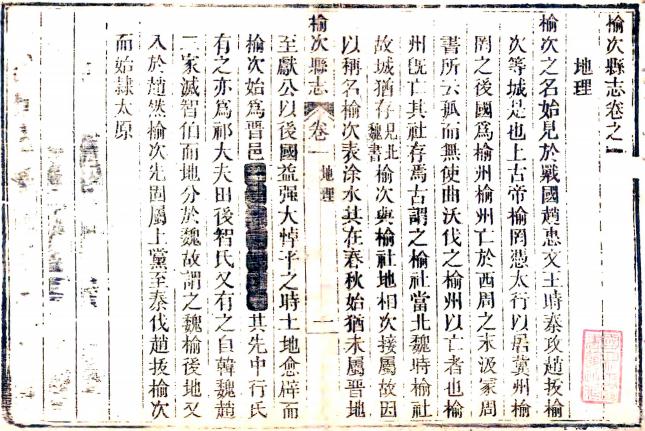 榆次縣志卷之一
地理
榆次之名始見於戰國趙惠文王時秦攻趙拔榆
次等城是也上古帝榆罔憑太行以居冀州榆
罔之後國爲榆州榆州亡於西周之末汲冢周
書所云孤而無使曲沃伐之榆州以亡者也榆
州旣亡其社存焉古謂之榆社當北魏時榆社
故城猶存見北魏書榆次與榆社地相次接屬故因
以稱名榆次表涂水其在春秋始猶未屬晉地
榆次縣志 卷一 地理 一
至獻公以後國益强大悼子之時土地愈辟而
榆次始爲晉邑其先中行氏
有之亦爲祁大夫田後智氏又有之自韓魏趙
三家滅智伯而地分於魏故謂之魏榆後地又
入於趙然榆次先固屬上黨至秦伐趙拔榆次
而始隸太原